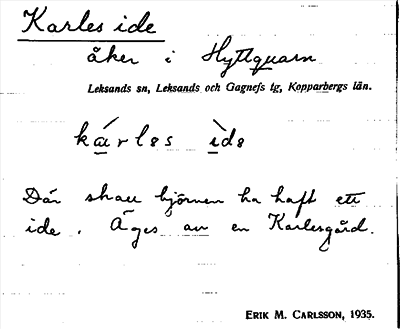 Karles ide
åker i Hyttquarn
Leksands sn, Leksands och Gagnefs tg, Kopparbergs län.
kárles ìde
Där skall björnen ha haft ett
ide. Äges av en Karlesgård.
ERIK M. CARLSSON, 1935.